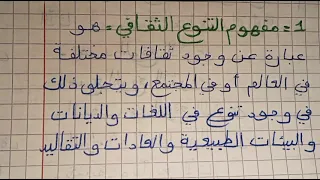 1 = مفهوم التنوع الثقافي = هو
عبارة عن وجود ثقافات مختلفة
في العالم أو في المجتمع، ويتجلى ذلك
في وجود تنوع في اللغات والديانات
والبيئات الطبيعية والعادات والتقاليد